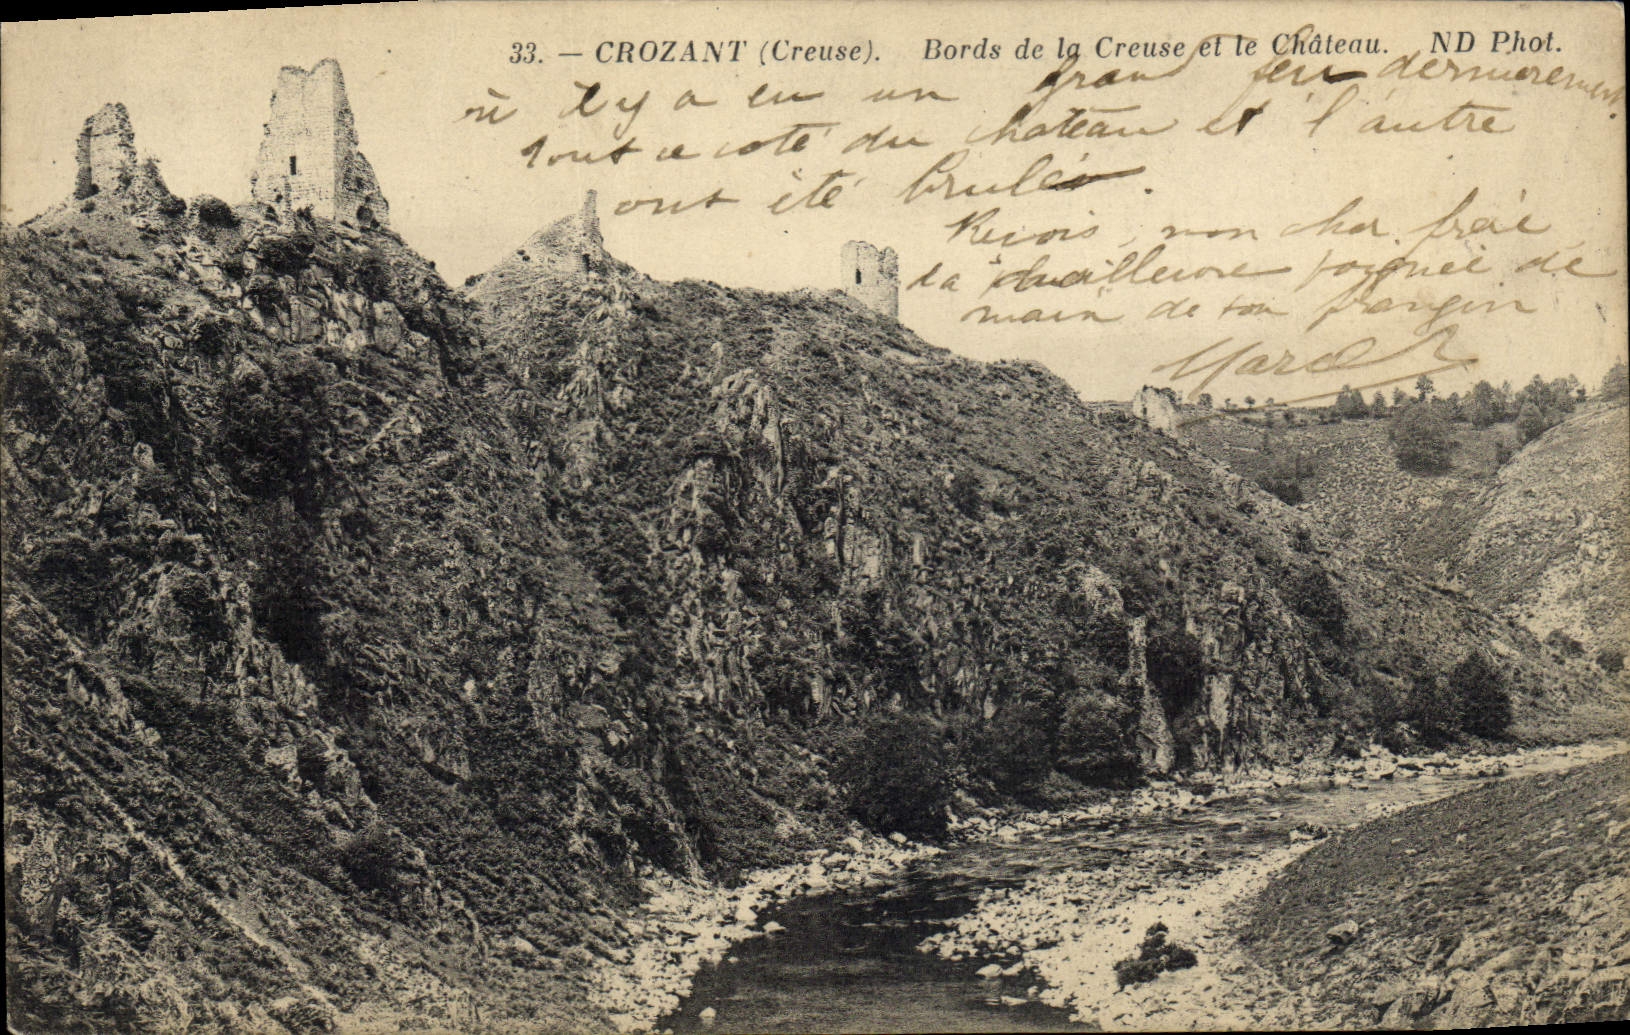 33. — CROZANT (Creuse). Bords de la Creuse et le Château. ND Phot.
où il y a eu un grand feu dernièrement.
tout ce coté du chateau et l'autre
ont été brulés.
Reçois, mon cher frère
la meilleure poignée de
main de ton frangin
Marcel